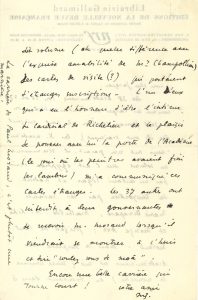 Librairie Gallimard
ÉDITIONS DE LA NOUVELLE REVUE FRANÇAISE
nrf
de volume (oh! quelle différence avec
l'exquise amabilité de M. Champollion)
des cartes de visite (?) qui portaient
d'étranges inscriptions - L'un d'eux
qui a eu l'honneur d'être l'intime
du Cardinal de Richelieu et le plaisir
de pousser avec lui la porte de l'Académie
(le jour où les peintres avaient fini
les lambris) m'a communiqué ces
cartes étranges. Les 37 autres ont
à deux gouvernantes
de recevoir M. Morand lorsqu'il
viendrait se montrer à l'huis
et dire "voulez vous de moi".
Encore une belle carrière qui
tourne court! votre ami
La carrière de Paul Morand, c'est plutôt une